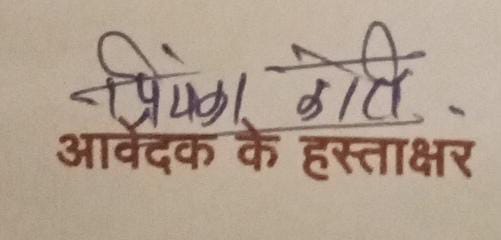 प्रियंका
आवेदक के हस्ताक्षर